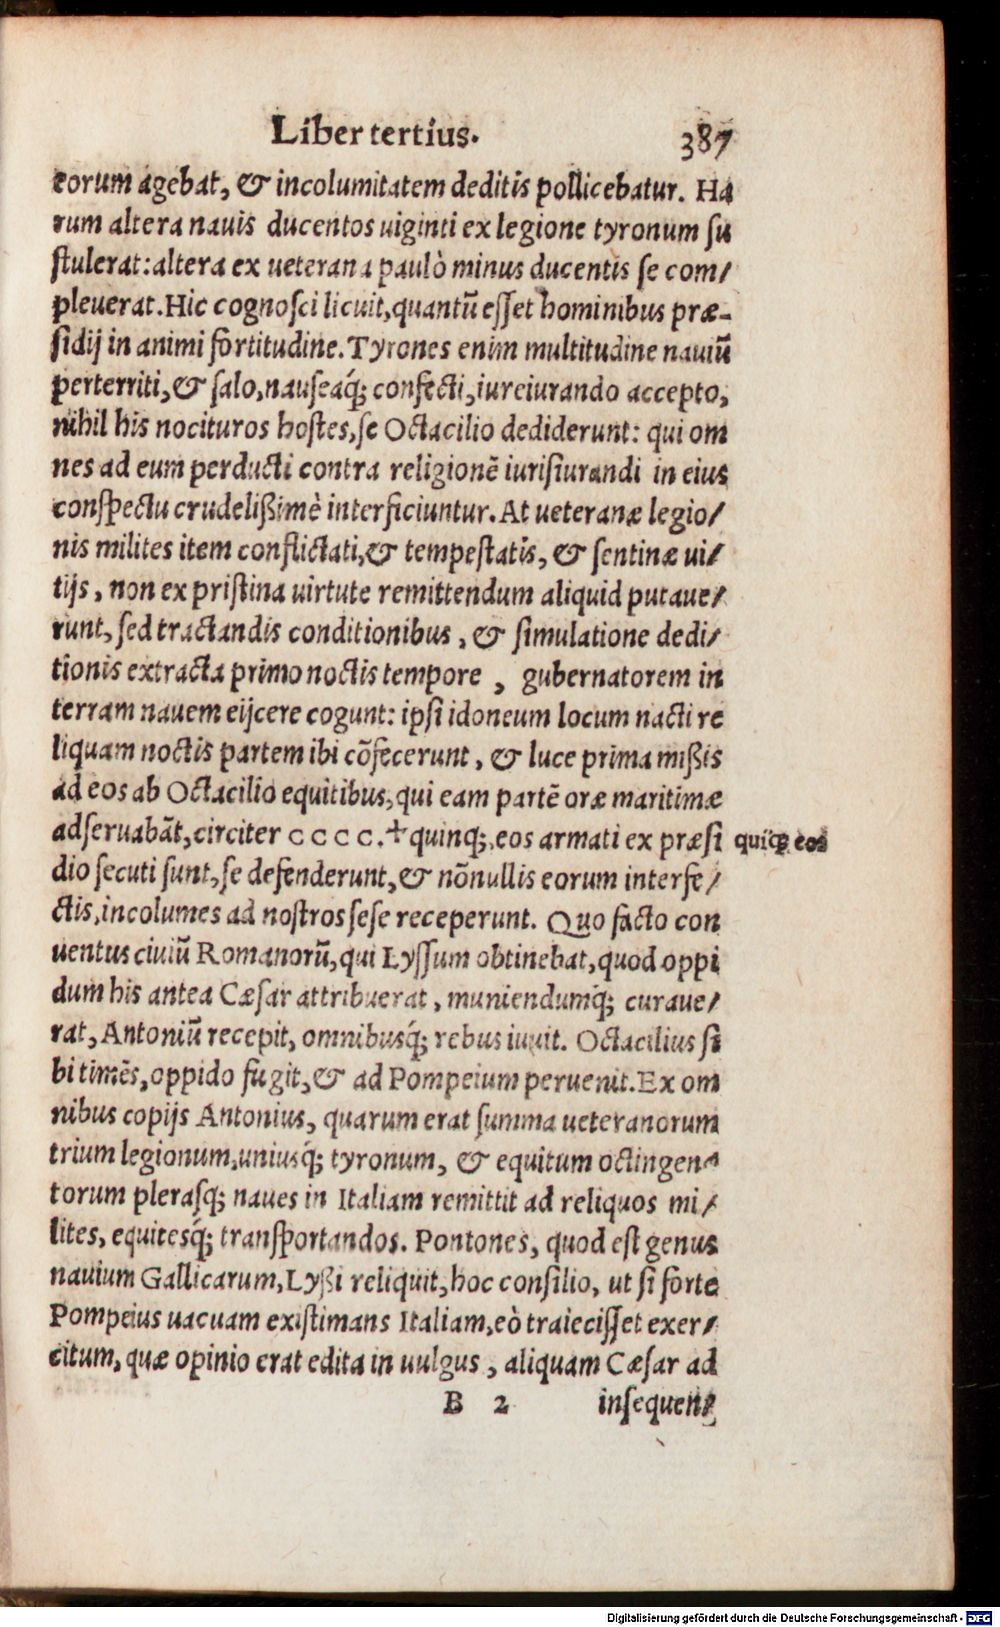 Liber tertius. 387
eorum agebat, & incolumitatem deditis pollicebatur. Ha
rum altera nauis ducentos uiginti ex legione tyronum su
stulerat: altera ex ueterana paulò minus ducentis se com/
pleuerat. Hic cognosci licuit, quantũ esset hominibus præ-
sidij in animi fortitudine. Tyrones enim multitudine nauiũ
perterriti, & salo, nauseaq́; confecti, iureiurando accepto,
nihil his nocituros hostes, se Octacilio dediderunt: qui om
nes ad eum perducti contra religionẽ iurisiurandi in eius
conspectu crudelißimè interficiuntur. At ueteranæ legio/
nis milites item conflictati, & tempestatis, & sentinæ ui/
tijs, non ex pristina uirtute remittendum aliquid putaue/
runt, sed tractandis conditionibus, & simulatione dedi/
tionis extracta primo noctis tempore, gubernatorem in
terram nauem eijcere cogunt: ipsi idoneum locum nacti re
liquam noctis partem ibi cõfecerunt, & luce prima mißis
ad eos ab Octacilio equitibus, qui eam partẽ oræ maritimæ
adseruabãt, circiter cccc. ☩ quinq;, eos armati ex præsi quiq; eos
dio secuti sunt, se defenderunt, & nõnullis eorum interfe/
ctis, incolumes ad nostros sese receperunt. Quo facto con
uentus ciuiũ Romanorũ, qui Lyssum obtinebat, quod oppi
dum his antea Cæsar attribuerat, muniendumq́; curaue/
rat, Antoniũ recepit, omnibusq́; rebus iuuit. Octacilius si
bi timẽs, oppido fugit, & ad Pompeium peruenit. Ex om
nibus copijs Antonius, quarum erat summa ueteranorum
trium legionum, uniusq́; tyronum, & equitum octingen
torum plerasq; naues in Italiam remittit ad reliquos mi/
lites, equitesq́; transportandos. Pontones, quod est genus
nauium Gallicarum, Lyßi reliquit, hoc consilio, ut si forte
Pompeius uacuam existimans Italiam, eò traiecisset exer/
citum, quæ opinio erat edita in uulgus, aliquam Cæsar ad
B 2 insequen/
Digitalisierung gefördert durch die Deutsche Forschungsgemeinschaft - DFG